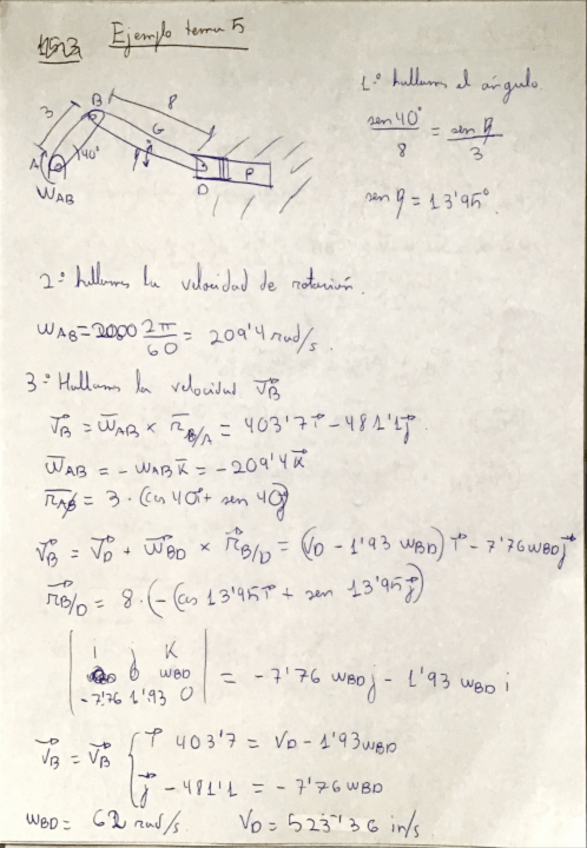 Ejemplo tema 5
1.º hallamos el ángulo.
sen 40° / 8 = sen β / 3
sen β = 13'95°.
3 B 8
G
A 40° D P
W̄AB
2.º hallamos la velocidad de rotación.
WAB = 2000 2π/60 = 209'4 rad/s.
3.º Hallamos la velocidad V⃗B
V⃗B = W̄AB × r̄B/A = 403'7 i⃗ - 481'1 j⃗.
W̄AB = - WAB k̄ = - 209'4 k̄
r̄AB = 3 · (cos 40 i⃗ + sen 40 j⃗)
V⃗B = V⃗D + W̄BD × r⃗B/D = (VD - 1'93 WBD) i⃗ - 7'76 WBD j⃗
r⃗B/D = 8 · (- cos 13'95 i⃗ + sen 13'95 j⃗)
| i j K |
| 0 0 WBD | = - 7'76 WBD j - 1'93 WBD i
| -7'76 1'93 0 |
V⃗B = V⃗B { i⃗ 403'7 = VD - 1'93 WBD
j⃗ - 481'1 = - 7'76 WBD
WBD = 62 rad/s. VD = 523'36 in/s.